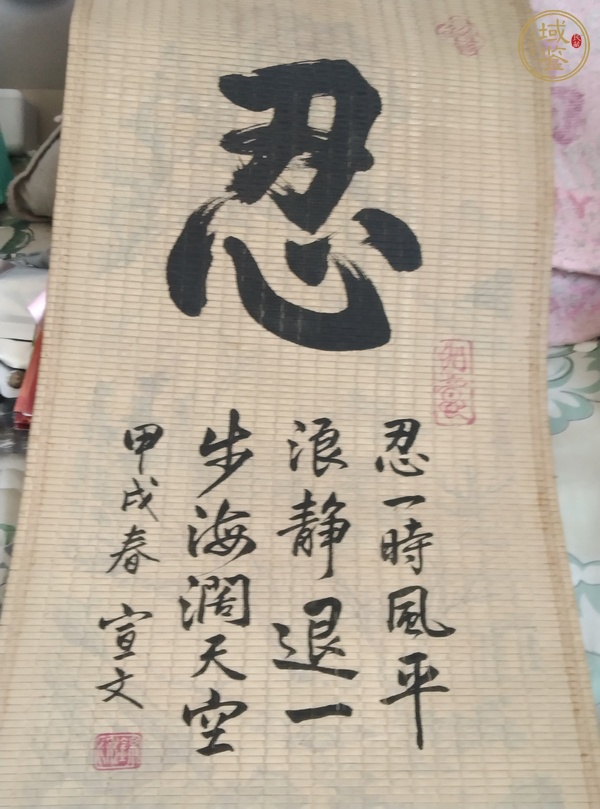 忍
忍一時風平
浪静退一
步海濶天空
甲戌春 宣文
域鉴